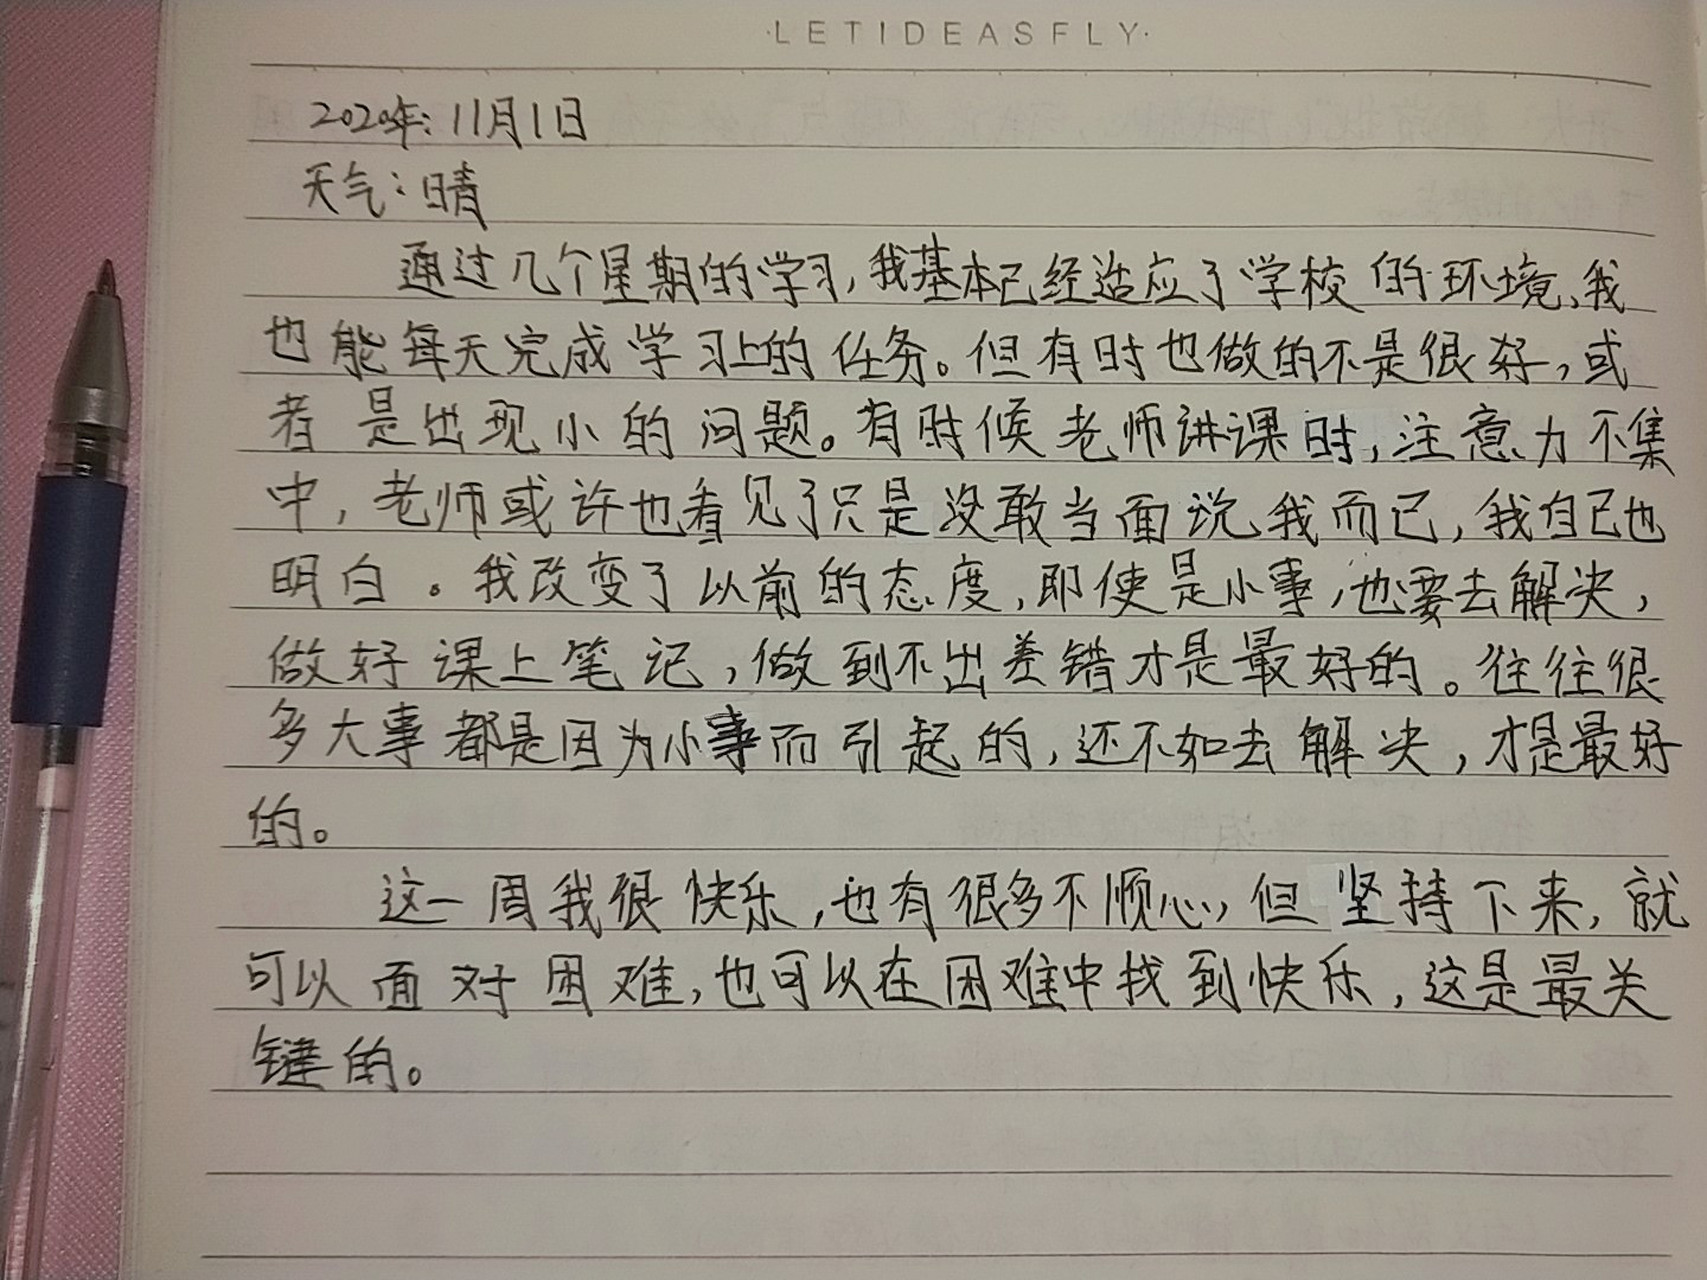 ·LETIDEASFLY·
2020年:11月1日
天气:晴
通过几个星期的学习,我基本已经适应了学校的环境,我
也能每天完成学习上的任务。但有时也做的不是很好,或
者是出现小的问题。有时候老师讲课时,注意力不集
中,老师或许也看见了只是没敢当面说我而已,我自己也
明白。我改变了以前的态度,即使是小事,也要去解决,
做好课上笔记,做到不出差错才是最好的。往往很
多大事都是因为小事而引起的,还不如去解决,才是最好
的。
这一周我很快乐,也有很多不顺心,但坚持下来,就
可以面对困难,也可以在困难中找到快乐,这是最关
键的。